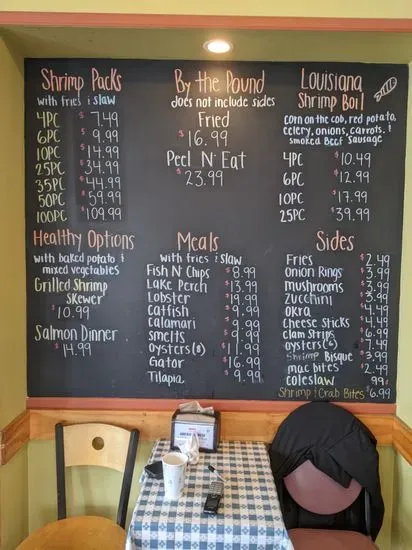 Shrimp Packs
with fries & slaw
4PC $7.49
6PC $9.99
10PC $14.99
25PC $34.99
35PC $44.99
50PC $59.99
100PC $109.99
By the Pound
does not include sides
Fried
$16.99
Peel N' Eat
$23.99
Louisiana
Shrimp Boil
corn on the cob, red potato,
celery, onions, carrots, &
smoked Beef sausage
4PC $10.49
6PC $12.99
10PC $17.99
25PC $39.99
Healthy Options
with baked potato &
mixed vegetables
Grilled Shrimp
Skewer
$10.99
Salmon Dinner
$14.99
Meals
with fries & slaw
Fish N' Chips $8.99
Lake Perch $13.99
Lobster $19.99
Catfish $9.99
Calamari $9.99
smelts $9.99
oysters(8) $11.99
Gator $16.99
Tilapia $9.99
Sides
Fries $2.49
Onion Rings $3.99
mushrooms $3.99
Zucchini $3.99
Okra $4.49
Cheese Sticks $4.99
clam Strips $6.99
oysters(6) $7.49
Shrimp Bisque $3.99
mac bites $2.49
coleslaw .99¢
Shrimp & Crab Bites $6.99